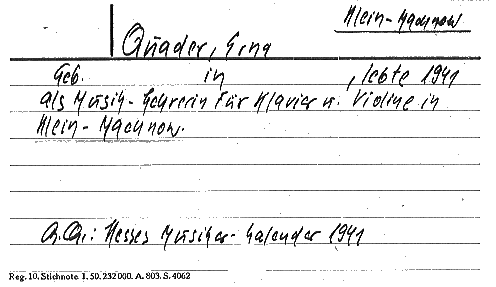 Klein-Machnow
Quader, Erna
Geb. in , lebte 1941
als Musik-Lehrerin für Klavier u. Violine in
Klein-Machnow.
Qu.: Hesses Musiker-Kalender 1941
Reg. 10. Stichnote 1. 50. 232 000. A. 803. S. 4062